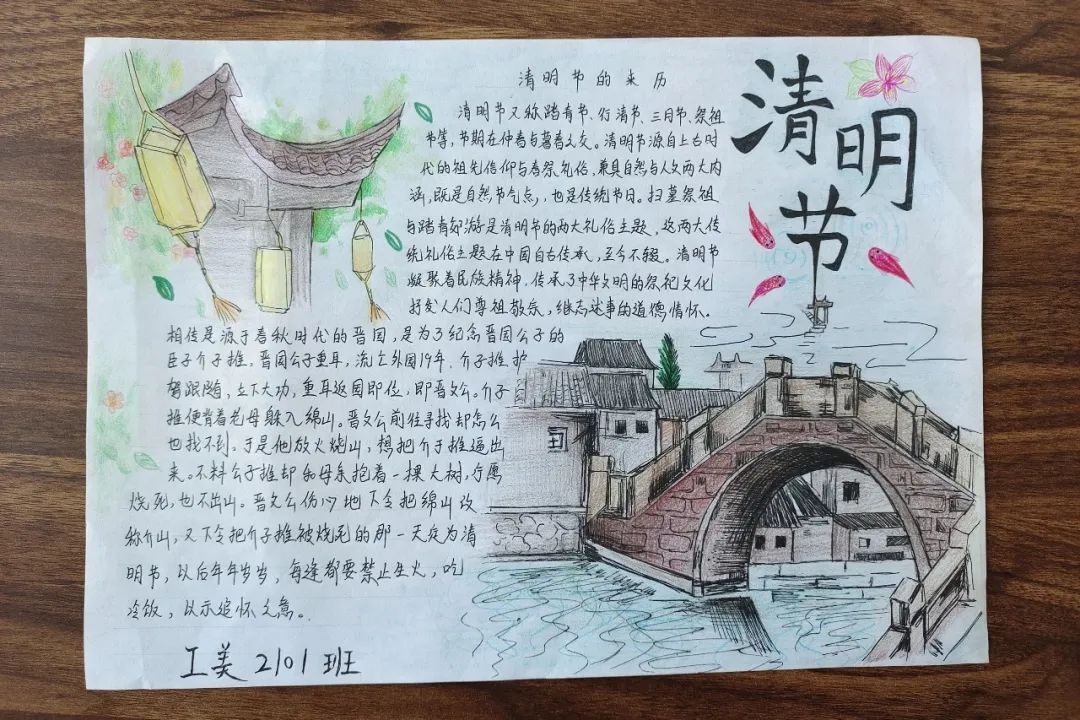 清明节
清明节的来历
清明节又称踏青节、行清节、三月节、祭祖
节等，节期在仲春与暮春之交。清明节源自上古时
代的祖先信仰与春祭礼俗，兼具自然与人文两大内
涵，既是自然节气点，也是传统节日。扫墓祭祖
与踏青郊游是清明节的两大礼俗主题，这两大传
统礼俗主题在中国自古传承，至今不辍。清明节
凝聚着民族精神，传承了中华文明的祭祀文化
抒发人们尊祖敬宗，继志述事的道德情怀。
相传是源于春秋时代的晋国，是为了纪念晋国公子的
臣子介子推。晋国公子重耳，流亡外国19年，介子推护
驾跟随，立下大功，重耳返国即位，即晋文公。介子
推便背着老母躲入绵山。晋文公前往寻找却怎么
也找不到，于是他放火烧山，想把介子推逼出
来。不料公子推却和母亲抱着一棵大树，宁愿
烧死，也不出山。晋文公伤心地下令把绵山改
称介山，又下令把介子推被烧死的那一天定为清
明节，以后年年岁岁，每逢都要禁止生火，吃
冷饭，以示追怀之意。
工美2101班